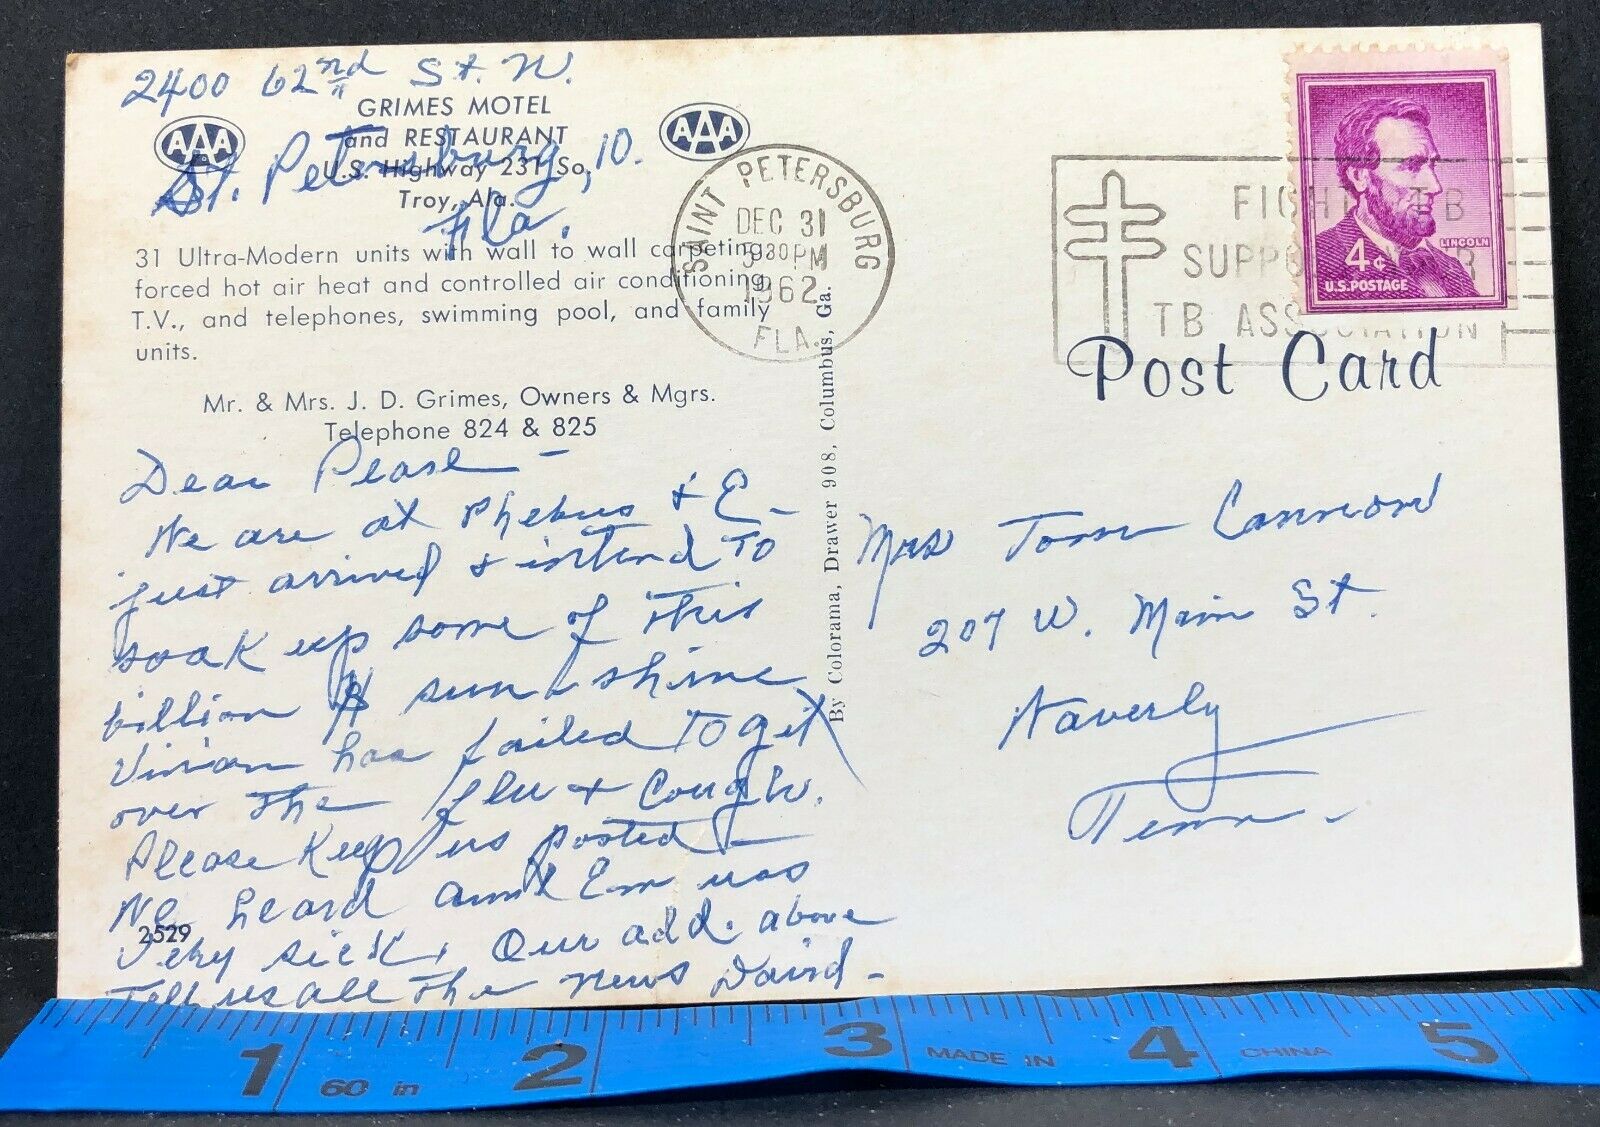 2400 62nd St. N.
GRIMES MOTEL
and RESTAURANT
U.S. Highway 231 So.
Troy, Ala.
AAA
AAA
St. Petersburg, 10.
Fla.
31 Ultra-Modern units with wall to wall carpeting,
forced hot air heat and controlled air conditioning,
T.V., and telephones, swimming pool, and family
units.
Mr. & Mrs. J. D. Grimes, Owners & Mgrs.
Telephone 824 & 825
Dear Pearl -
We are at Phebus & E -
just arrived & intend to
soak up some of this
billion $ sun shine
Vivian has failed to get
over the flu & cough.
Please keep us posted -
We heard aunt Em was
very sick, Our add. above
Tell us all the news David -
2529
By Colorama, Drawer 908, Columbus, Ga.
SAINT PETERSBURG
DEC 31
5 30 PM
1962
FLA.
FIGHT TB
SUPPORT YOUR
TB ASSOCIATION
LINCOLN
4¢
U.S. POSTAGE
Post Card
Mrs Tom
207 W. Main St.
Waverly
Tenn.
1 2 3 4 5
60 in
MADE IN CHINA